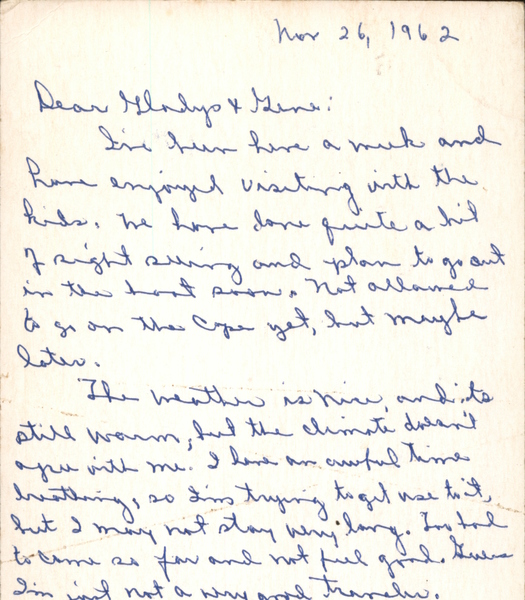 Nov 26, 1962
Dear Gladys & Gene:
I've been here a week and
have enjoyed visiting with the
kids. We have done quite a bit
of sight seeing and plan to go out
in the boat soon. Not allowed
to go on the Cape yet, but maybe
later.
The weather is nice, and its
still warm, but the climate doesn't
agree with me. I have an awful time
breathing, so I'm trying to get use to it,
but I may not stay very long. Too bad
to come so far and not feel good. Guess
I'm just not a very good traveler.